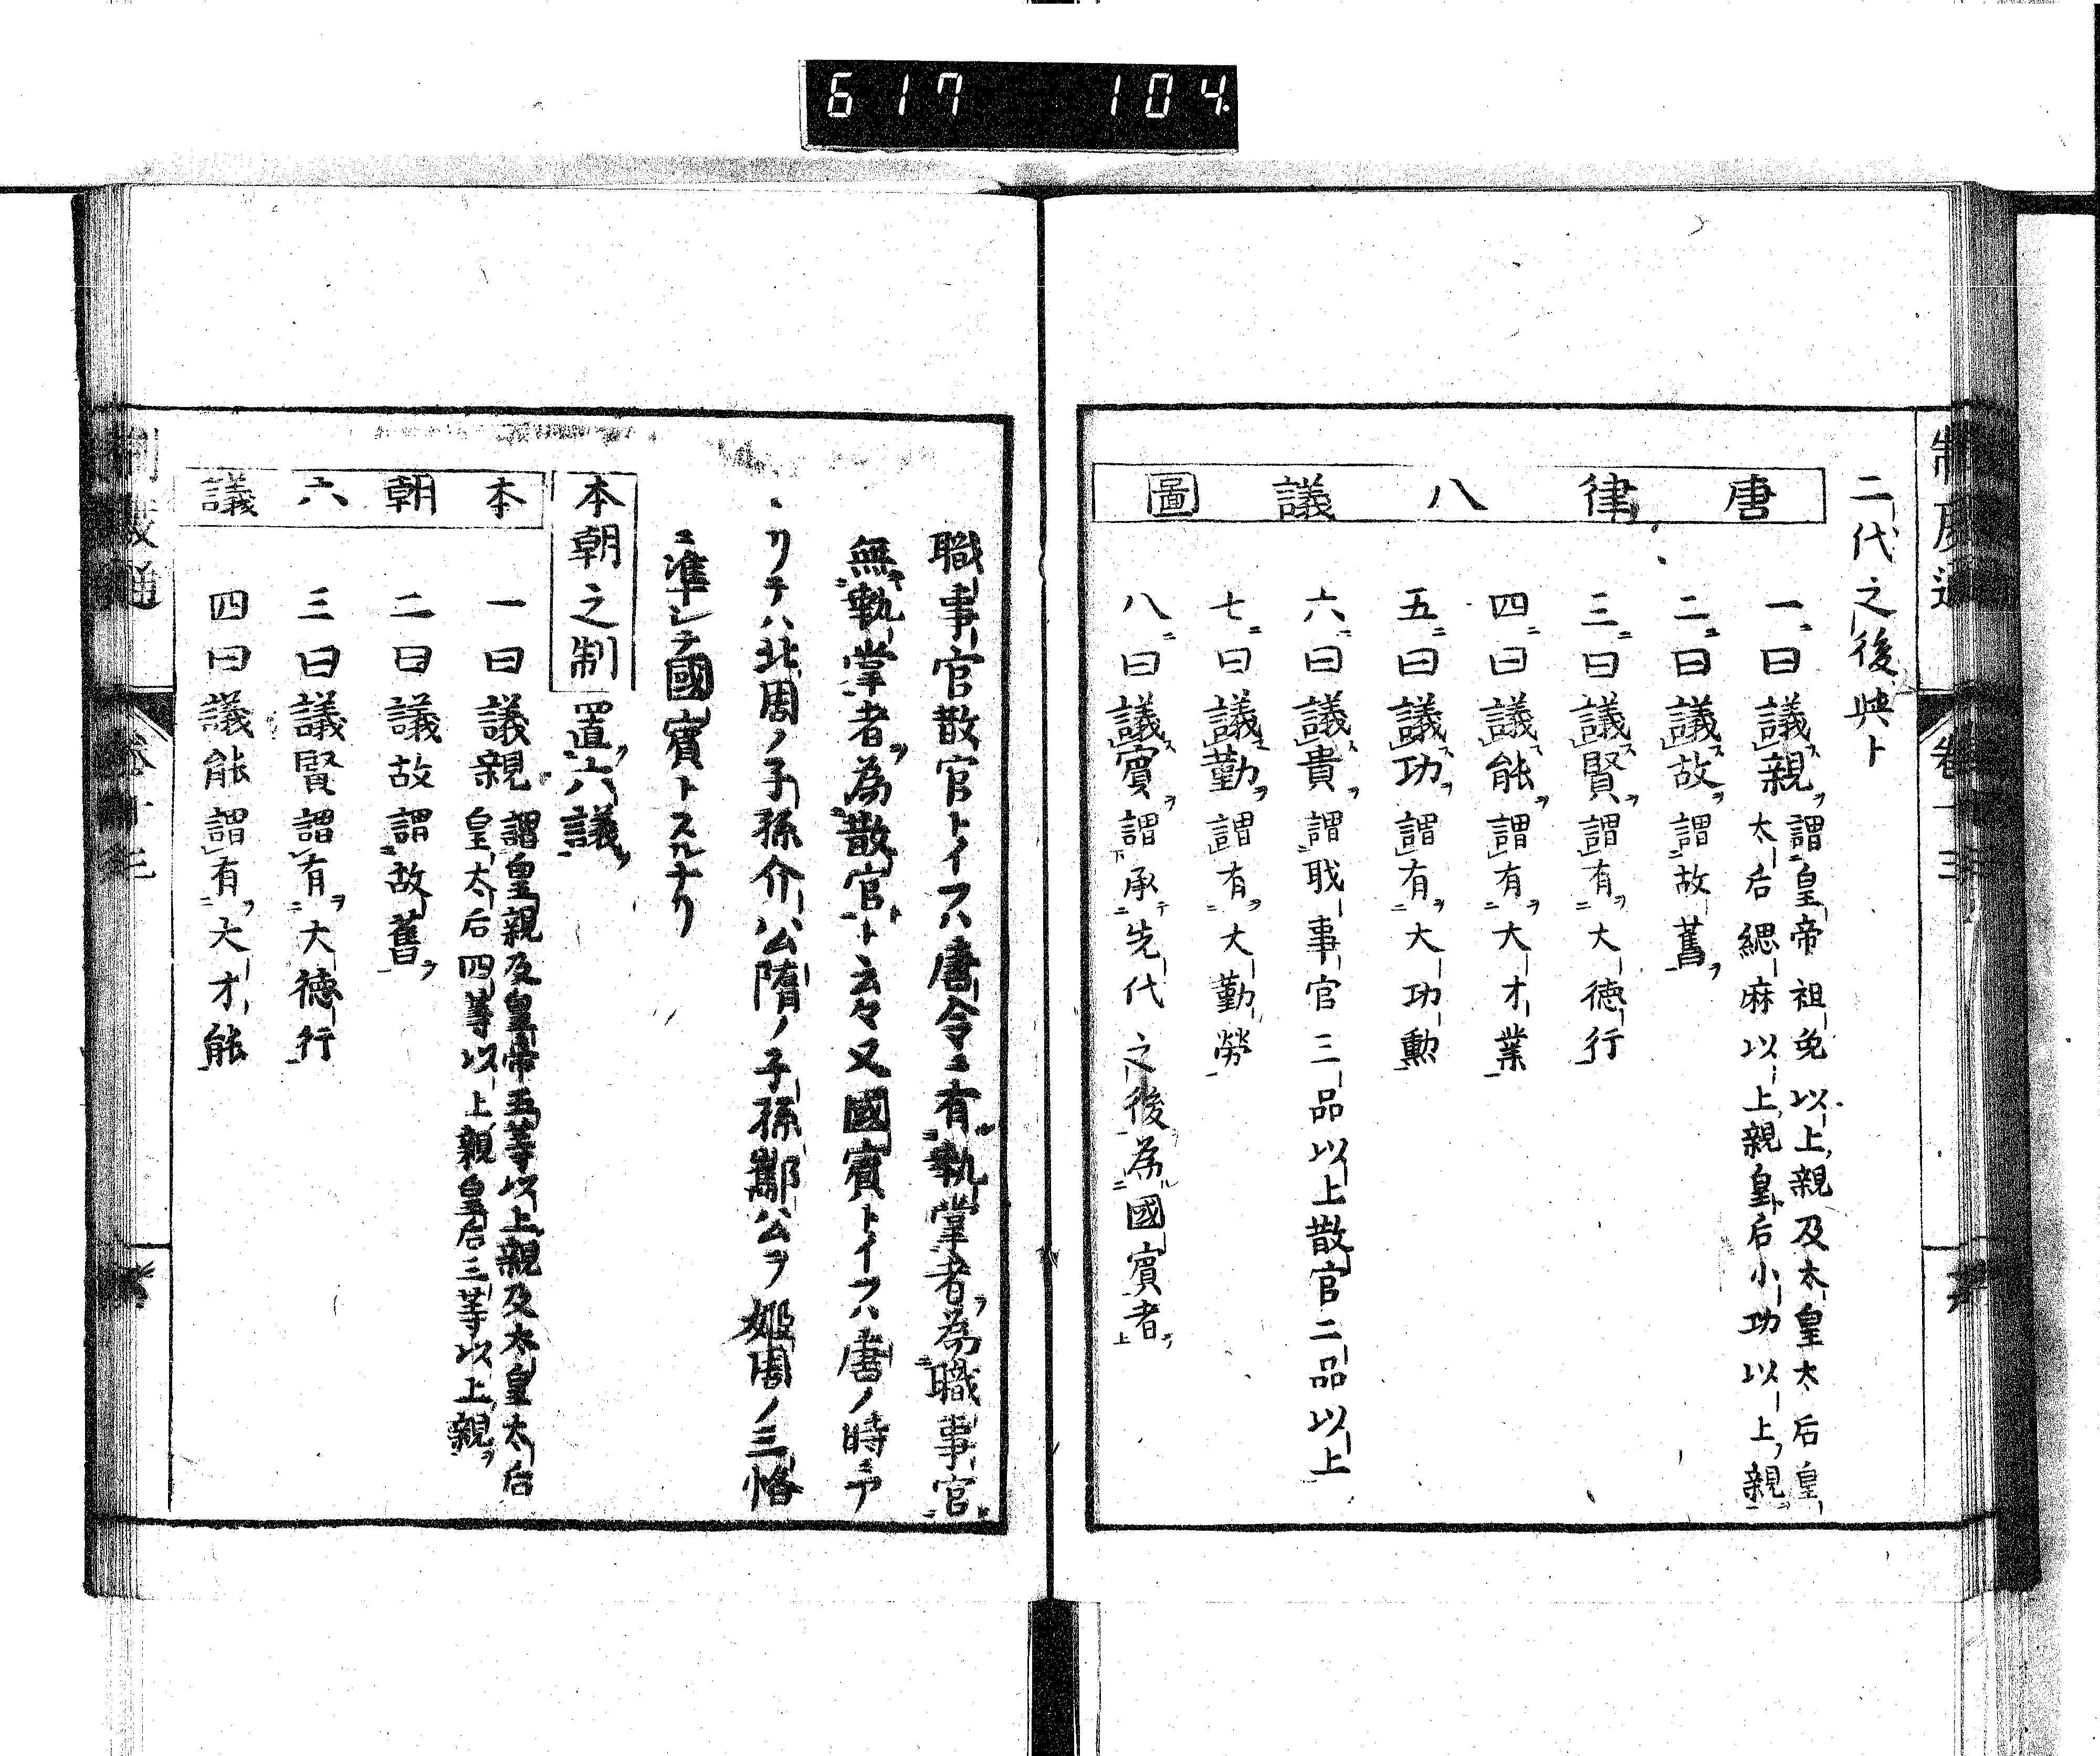 617 104
二代之後與ト
唐律八議圖
一ニ曰議スレ親ヲ謂皇帝祖免以上親及太皇太后皇
太后緦麻以上親皇后小功以上親
二ニ曰議スレ故ヲ謂故舊ヲ
三ニ曰議スレ賢ヲ謂有ヲ大德行
四ニ曰議スレ能ヲ謂有ヲ大才業
五ニ曰議スレ功ヲ謂有ヲ大功勲
六ニ曰議スレ貴ヲ謂職事官三品以上散官二品以上
七ニ曰議スレ勤ヲ謂有ヲ大勤勞
八ニ曰議スレ賓ヲ謂下承テ先代之後為ル國賓者上
職事官散官トイフハ唐令ニ有執掌者ヲ為職事官
無執掌者ヲ為散官ト云々又國賓トイフハ唐ノ時ニア
リテハ北周ノ子孫介公隋ノ子孫酅公ヲ姫周ノ三恪
ニ準シテ國賓トスルナリ
本朝之制置六議ヲ
本朝六議
一曰議親謂皇親及皇帝五等以上親及太皇太后
皇太后四等以上親皇后三等以上親ヲ
二曰議故謂故舊ヲ
三曰議賢謂有ヲ大德行
四曰議能謂有ヲ大才能